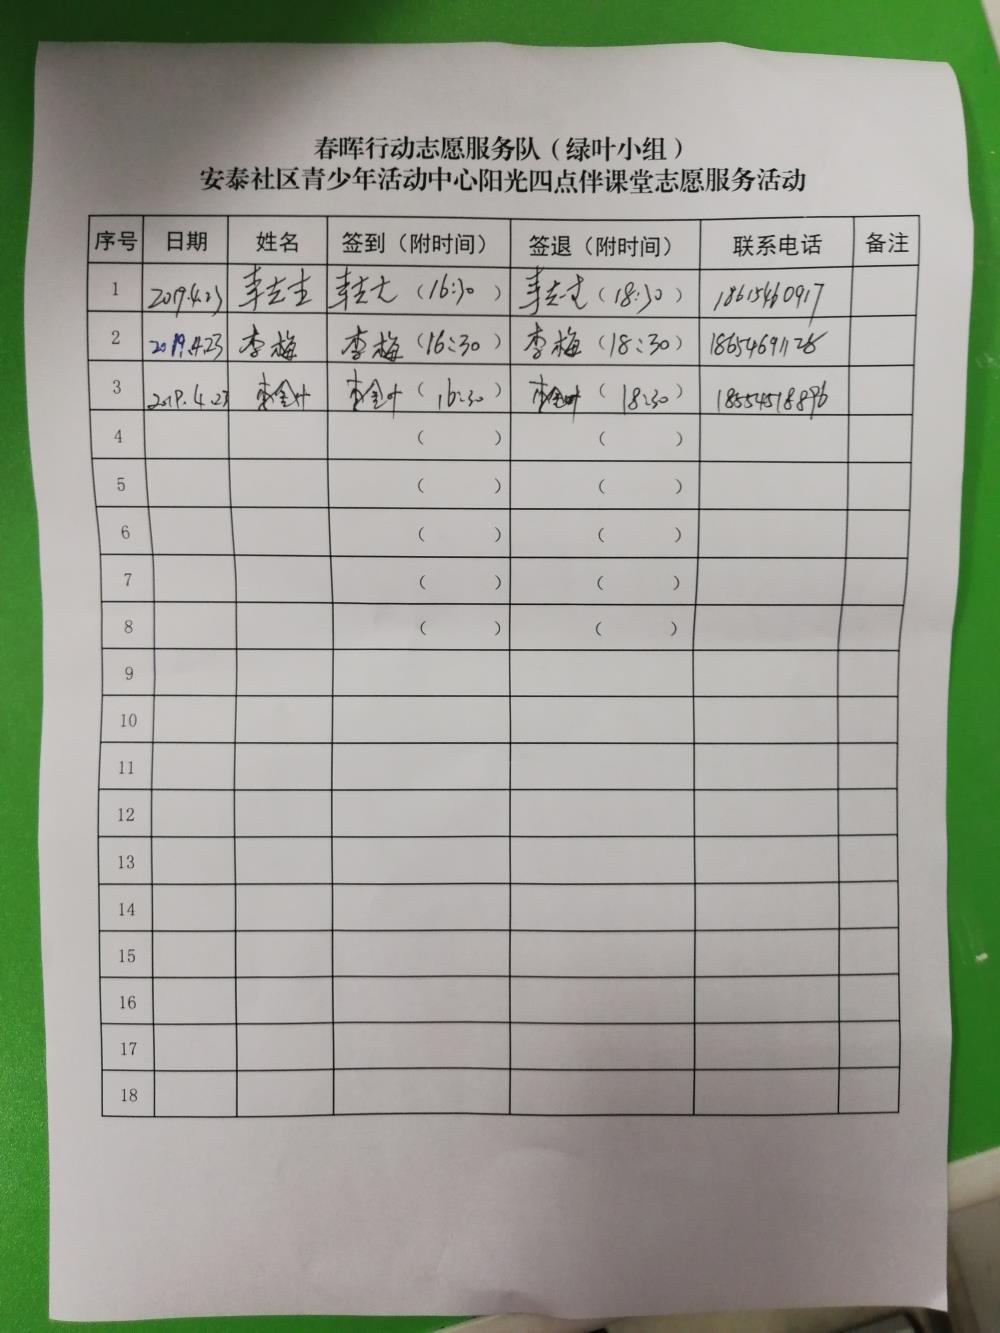 春晖行动志愿服务队（绿叶小组）
安泰社区青少年活动中心阳光四点伴课堂志愿服务活动
序号 日期 姓名 签到（附时间） 签退（附时间） 联系电话 备注
1 2019.4.23 （16:30） （18:30） 18615460917
2 2019.4.23 李梅 李梅（16:30） 李梅（18:30）
3 2019.4.23 （16:30） （18:30） 18554518896
4 （ ） （ ）
5 （ ） （ ）
6 （ ） （ ）
7 （ ） （ ）
8 （ ） （ ）
9
10
11
12
13
14
15
16
17
18